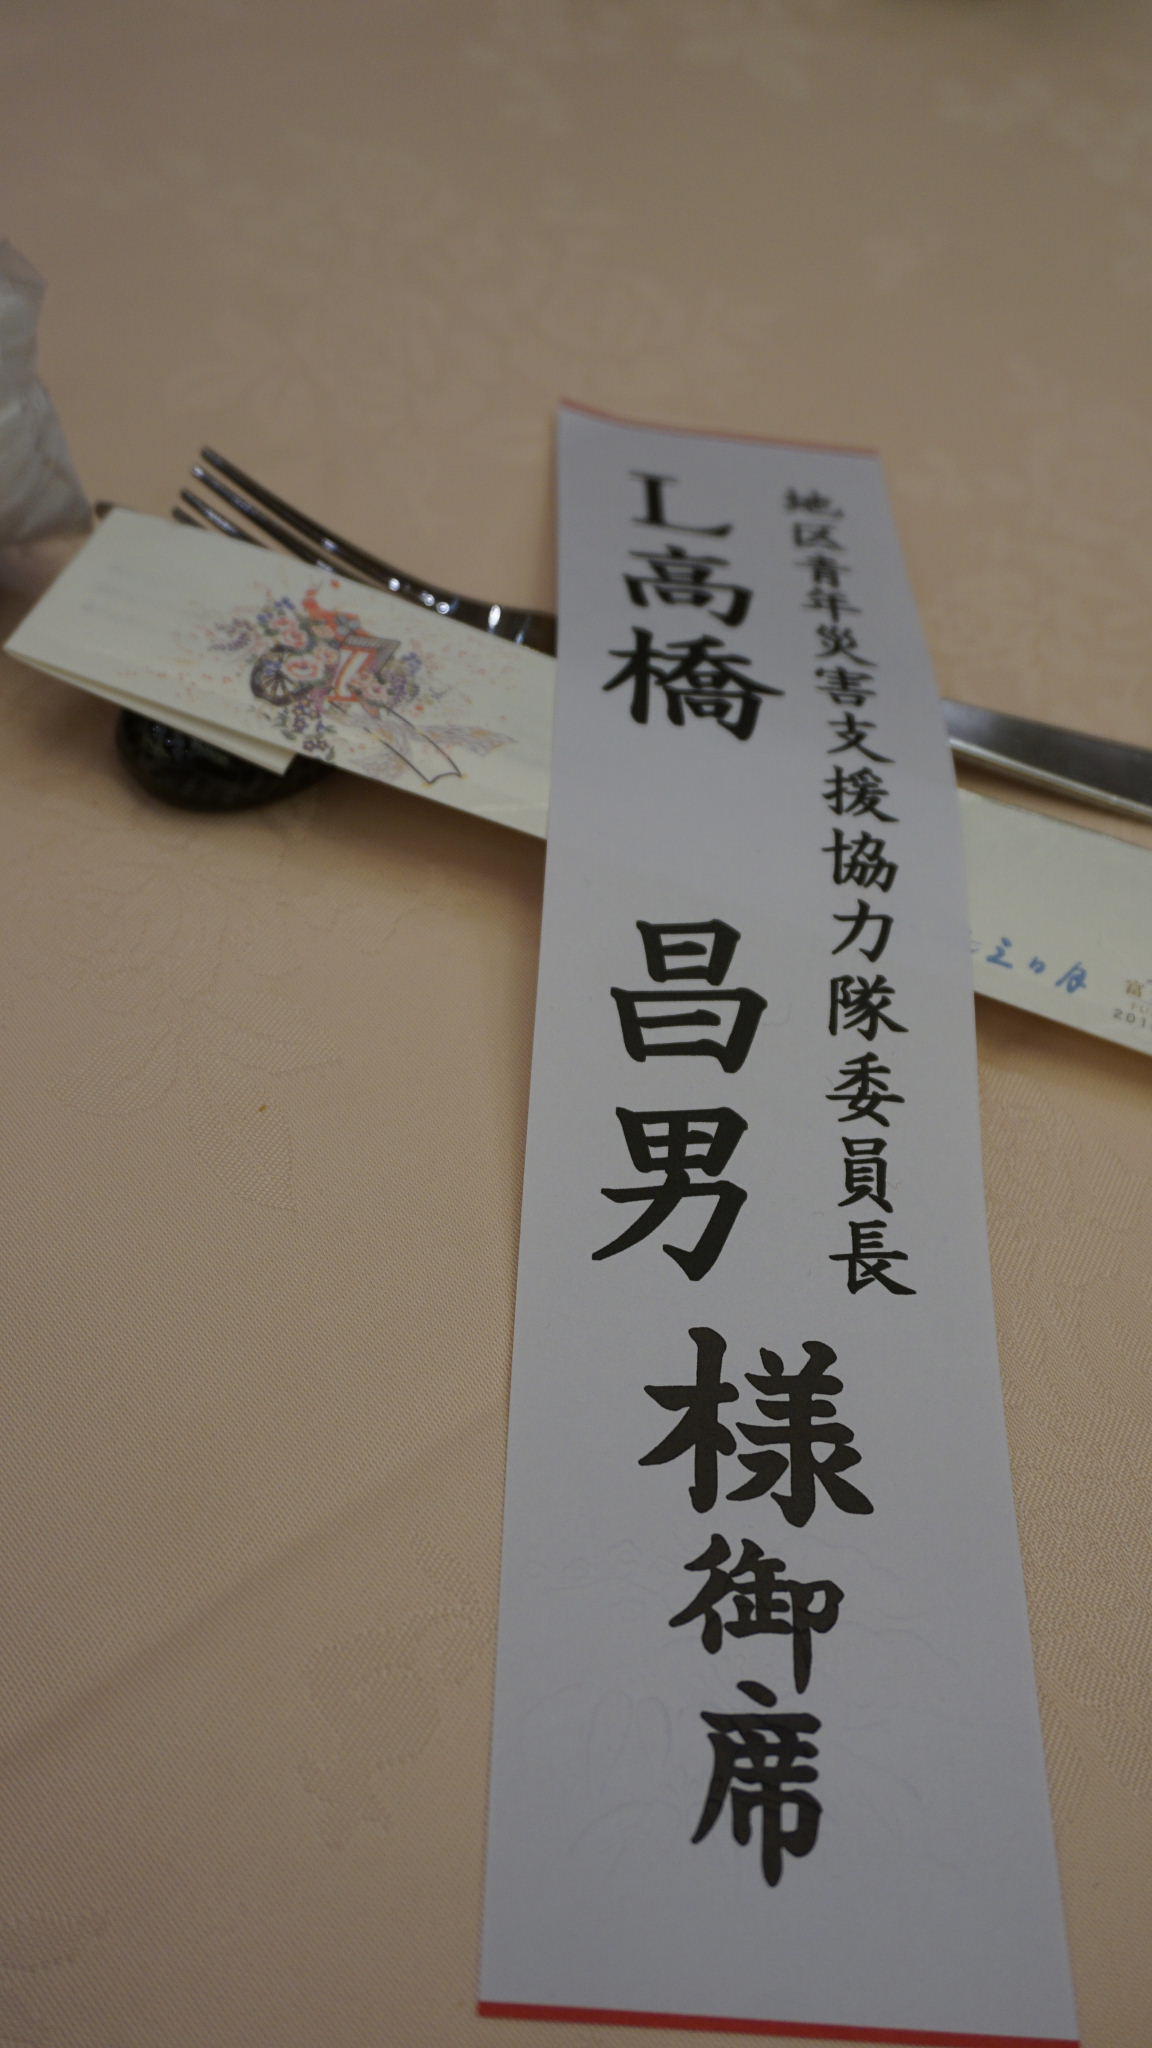 地区青年災害支援協力隊委員長
L高橋 昌男 様 御席
三日月
富
201